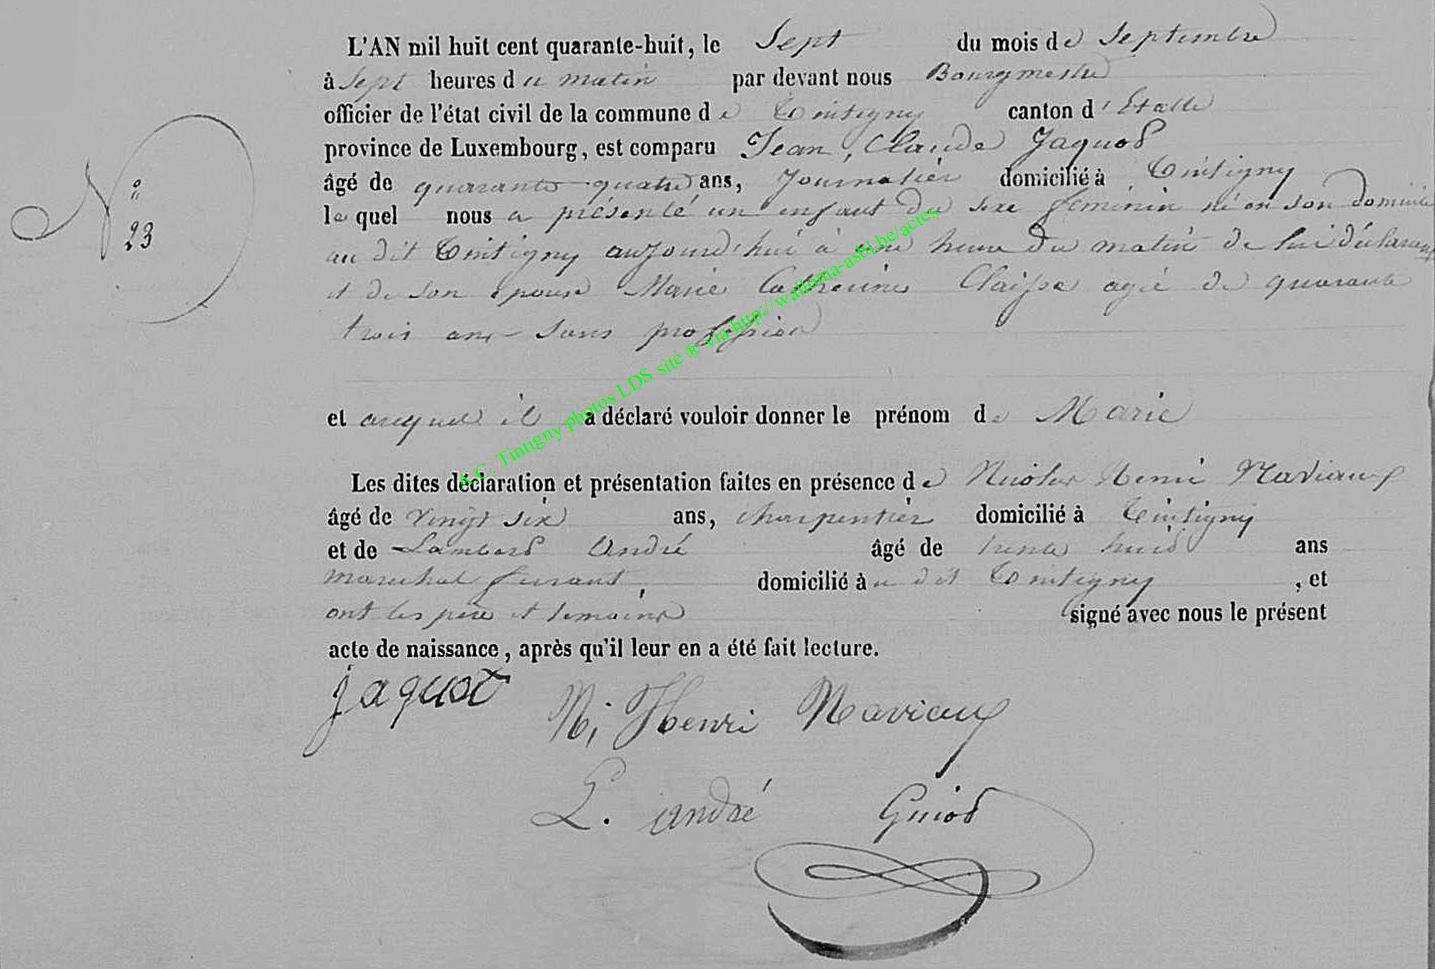 L'AN mil huit cent quarante-huit, le Sept du mois de Septembre
à Sept heures du matin par devant nous Bourgmestre
officier de l'état civil de la commune de Tintigny canton d'Etalle
province de Luxembourg, est comparu Jean, Claude Jaquot
âgé de quarante-quatre ans, Journalier domicilié à Tintigny
N° 23
lequel nous a présenté un enfant du sexe feminin né en son domicile
au dit Tintigny aujourd'hui à une heure du matin de lui déclarant
et de son épouse Marie Catherine Claisse agée de quarante
trois ans sans profession
et auquel il a déclaré vouloir donner le prénom de Marie
Les dites déclaration et présentation faites en présence de Nicolas Henri Maviaux
âgé de vingt six ans, charpentier domicilié à Tintigny
et de Lambert André âgé de trente huit ans
marechal ferrant, domicilié à u dit Tintigny, et
ont les père et temoins signé avec nous le présent
acte de naissance, après qu'il leur en a été fait lecture.
jaquot
N; Henri Maviaux
L. andré Guiot
A.C. Tintigny photos LDS site ® via http://wallonia-asbl.be/actes